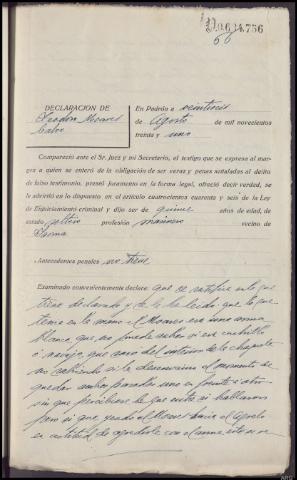 0.634.756
66
DECLARACIÓN DE
Teodoro Moares
Calvo
En Padrón a veintiseis
de Agosto de mil novecientos
treinta y uno
Compareció ante el Sr. Juez y mi Secretario, el testigo que se expresa al mar-
gen a quien se enteró de la obligación de ser veraz y penas señaladas al delito
de falso testimonio, prestó juramento en la forma legal, ofreció decir verdad, se
le advirtió lo dispuesto en el artículo cuatrocientos cuarenta y seis de la Ley
de Enjuiciamiento criminal y dijo ser de quince años de edad, de
estado soltero profesión marinero vecino de
Antecedentes penales no tiene
Examinado convenientemente declara: que se ratifica en lo que
tiene declarado y se le ha leido; que lo que
tenia en la mano el Moares era una arma
blanca, que no puede saber si era cuchillo
o navaja, que saco del interior de la chaqueta
no sabiendo si la desenvaino al momento de
quedar ambos parados uno en frente a otro
sin que percibiese lo que entre si hablaron
pero si que yendo el Moares hacia el Agrelo
en actitud de agredirle con el arma este se ve